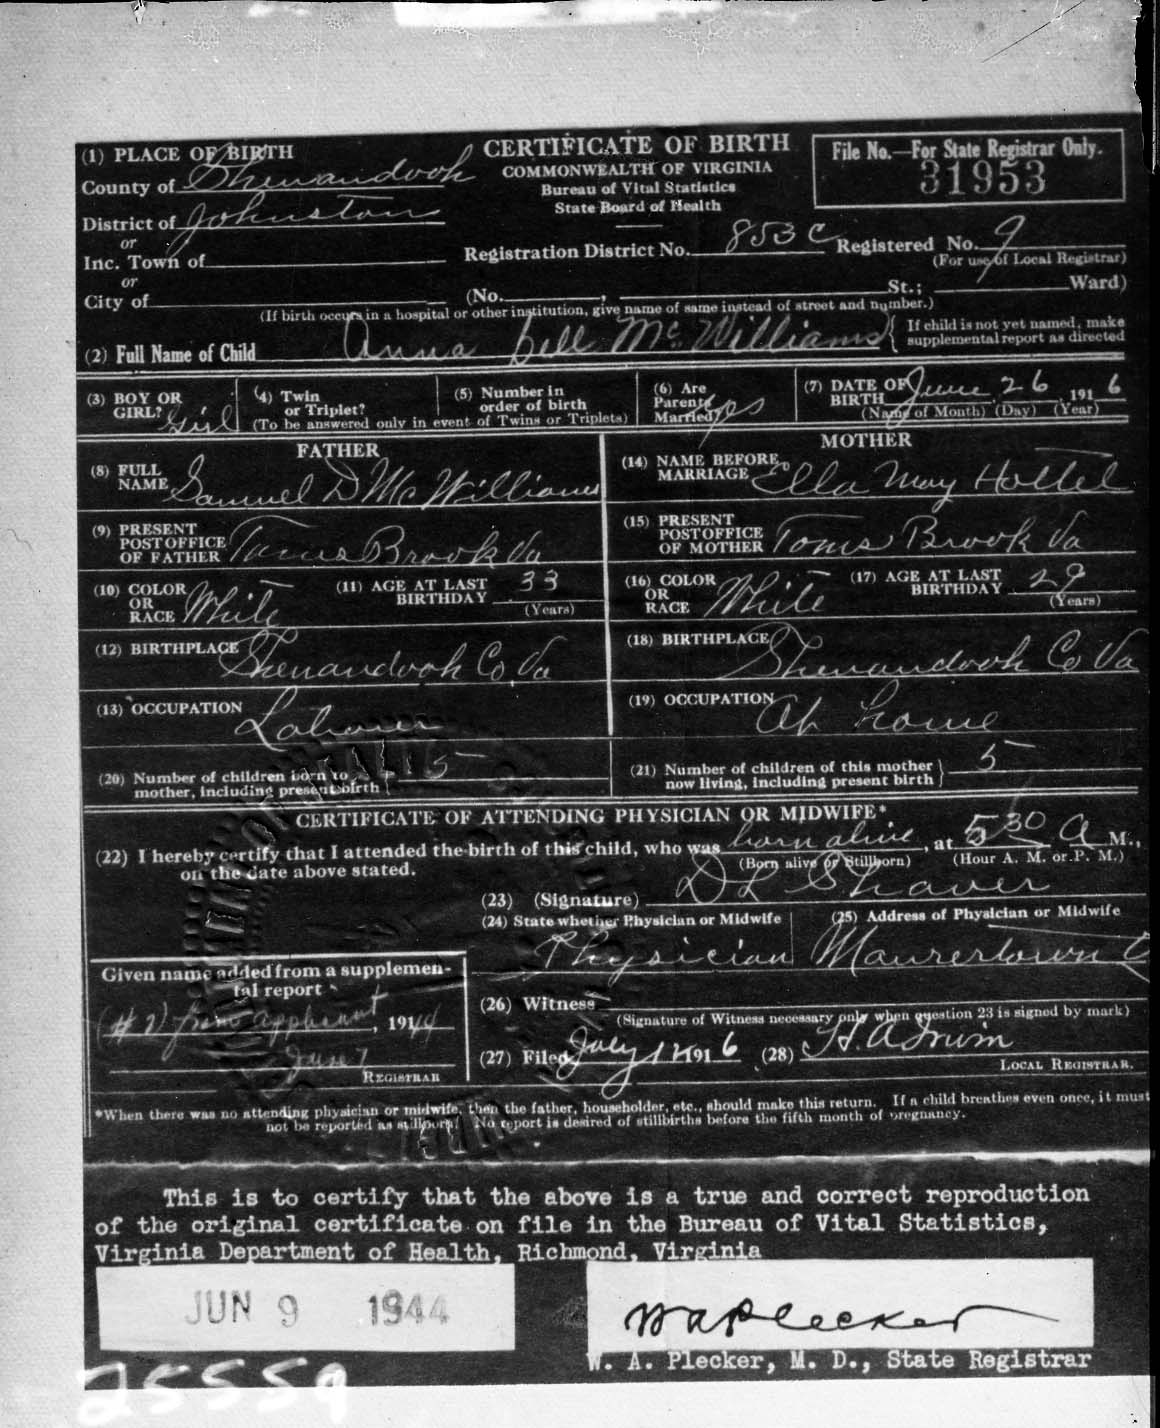 (1) PLACE OF BIRTH
County of Shenandoah
District of Johnston
or
Inc. Town of
or
City of
CERTIFICATE OF BIRTH
COMMONWEALTH OF VIRGINIA
Bureau of Vital Statistics
State Board of Health
File No.—For State Registrar Only.
31953
Registration District No. 853C Registered No. 9
(For use of Local Registrar)
(No. , St.; Ward)
(If birth occurs in a hospital or other institution, give name of same instead of street and number.)
(2) Full Name of Child Anna Bell McWilliams { If child is not yet named, make
supplemental report as directed
(3) BOY OR
GIRL? Girl
(4) Twin
or Triplet?
(5) Number in
order of birth
(To be answered only in event of Twins or Triplets)
(6) Are
Parents
Married? yes
(7) DATE OF
BIRTH June 26, 1916
(Name of Month) (Day) (Year)
FATHER
(8) FULL
NAME Samuel D McWilliams
(9) PRESENT
POSTOFFICE
OF FATHER Toms Brook Va
(10) COLOR
OR
RACE White
(11) AGE AT LAST
BIRTHDAY 33
(Years)
(12) BIRTHPLACE Shenandoah Co. Va
(13) OCCUPATION Laborer
(20) Number of children born to
mother, including present birth } 5
MOTHER
(14) NAME BEFORE
MARRIAGE Ella May Hottel
(15) PRESENT
POSTOFFICE
OF MOTHER Toms Brook Va
(16) COLOR
OR
RACE White
(17) AGE AT LAST
BIRTHDAY 29
(Years)
(18) BIRTHPLACE Shenandoah Co Va
(19) OCCUPATION At home
(21) Number of children of this mother
now living, including present birth } 5
CERTIFICATE OF ATTENDING PHYSICIAN OR MIDWIFE*.
(22) I hereby certify that I attended the birth of this child, who was born alive, at 5 30 A M.,
(Born alive or Stillborn) (Hour A. M. or P. M.)
on the date above stated.
(23) (Signature) D L Shaver
(24) State whether Physician or Midwife
Physician
(25) Address of Physician or Midwife
Maurertown
Given name added from a supplemen-
tal report
(#2) from applicant, 1944
June 7
REGISTRAR
(26) Witness
(Signature of Witness necessary only when question 23 is signed by mark)
(27) Filed July 12 1916 (28) H. A. Irwin
LOCAL REGISTRAR.
*When there was no attending physician or midwife, then the father, householder, etc., should make this return. If a child breathes even once, it must
not be reported as stillborn. No report is desired of stillbirths before the fifth month of pregnancy.
This is to certify that the above is a true and correct reproduction
of the original certificate on file in the Bureau of Vital Statistics,
Virginia Department of Health, Richmond, Virginia
JUN 9 1944
W A Plecker
W. A. Plecker, M. D., State Registrar
25559